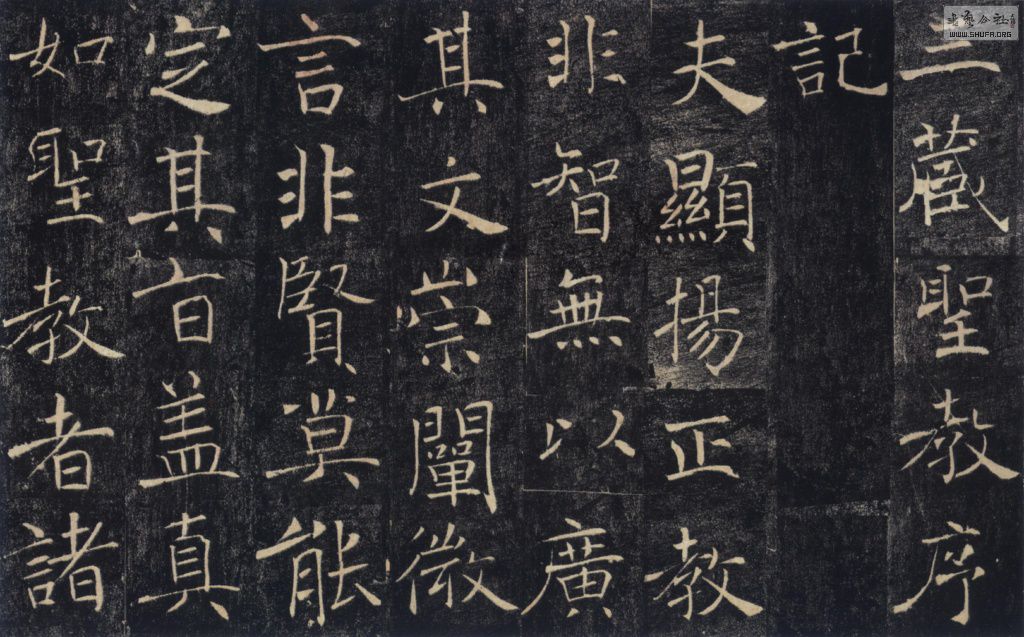 三藏聖教序
記
夫顯揚正教
非智無以廣
其文崇闡微
言非賢莫能
定其旨盖真
如聖教者諸
WWW.SHUFA.ORG